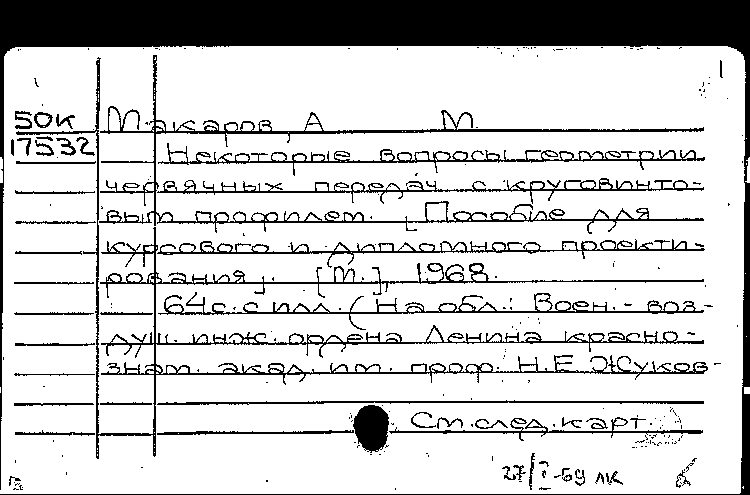 50К Макаров, А М.
17532
Некоторые вопросы геометрии
червячных передач с круговинто-
вым профилем. [Пособие для
курсового и дипломного проекти-
рования]. [М.], 1968.
64с. с илл. (На обл.: Воен.-воз-
душ. инж. ордена Ленина красно-
знам. акад. им. проф. Н.Е Жуков-
См. след. карт.
27/I-69 лк